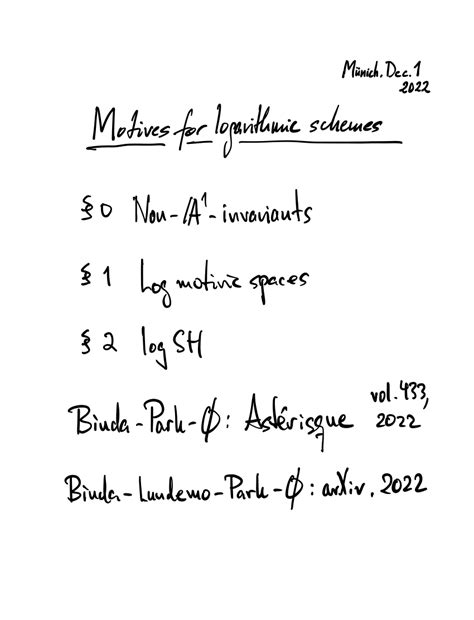 Münich, Dec. 1
2022
Motives for logarithmic schemes
§ 0 Non-A¹-invariants
§ 1 Log motivic spaces
§ 2 log SH
Binda-Park-Ø: Astérisque vol. 433, 2022
Binda-Lundemo-Park-Ø: arXiv, 2022